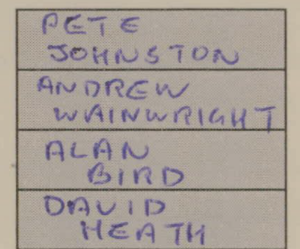 PETE
JOHNSTON
ANDREW
WAINWRIGHT
ALAN
BIRD
DAVID
HEATH